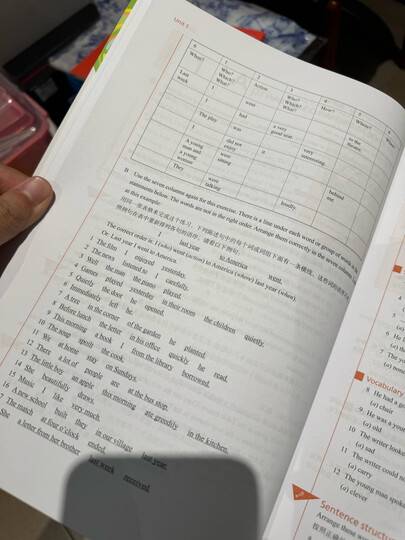 Unit 1
6 1 2 3 4 5 6
When? Who? Action Who? How? Where? When?
Which? Which?
What? What?
Last week I went to the theatre.
I had a very good seat.
The play was very interesting.
I did not enjoy it.
A young man and a young woman were sitting behind me.
They were talking loudly.
B Use the seven columns again for this exercise. There is a line under each word or group of words in the
statements below. The words are not in the right order. Arrange them correctly in the seven columns. Look
at this example:
I last year to America went.
The correct order is: I (who) went (action) to America (where) last year (when).
Or: Last year I went to America.
1 The film I enjoyed yesterday.
2 The news listened to I carefully.
3 Well the man the piano played.
4 Games played yesterday in their room the children quietly.
5 Quietly the door he opened.
6 Immediately left he.
7 A tree in the corner of the garden he planted.
8 Before lunch the letter in his office quickly he read.
9 This morning a book I from the library borrowed.
10 The soup spoilt the cook.
11 We at home stay on Sundays.
12 There a lot of people are at the bus stop.
13 The little boy an apple this morning ate greedily in the kitchen.
14 She beautifully draws.
15 Music I like very much.
16 A new school built they in our village last year.
17 The match at four o'clock ended.
She a letter from her brother last week received.
Vocabulary
8 He had a go
(a) chair
9 He was a youn
(a) old
10 The writer looke
(a) sad
11 The writer could no
(a) carry
12 The young man spoke
(a) clever
Sentence structur
Arrange these wor